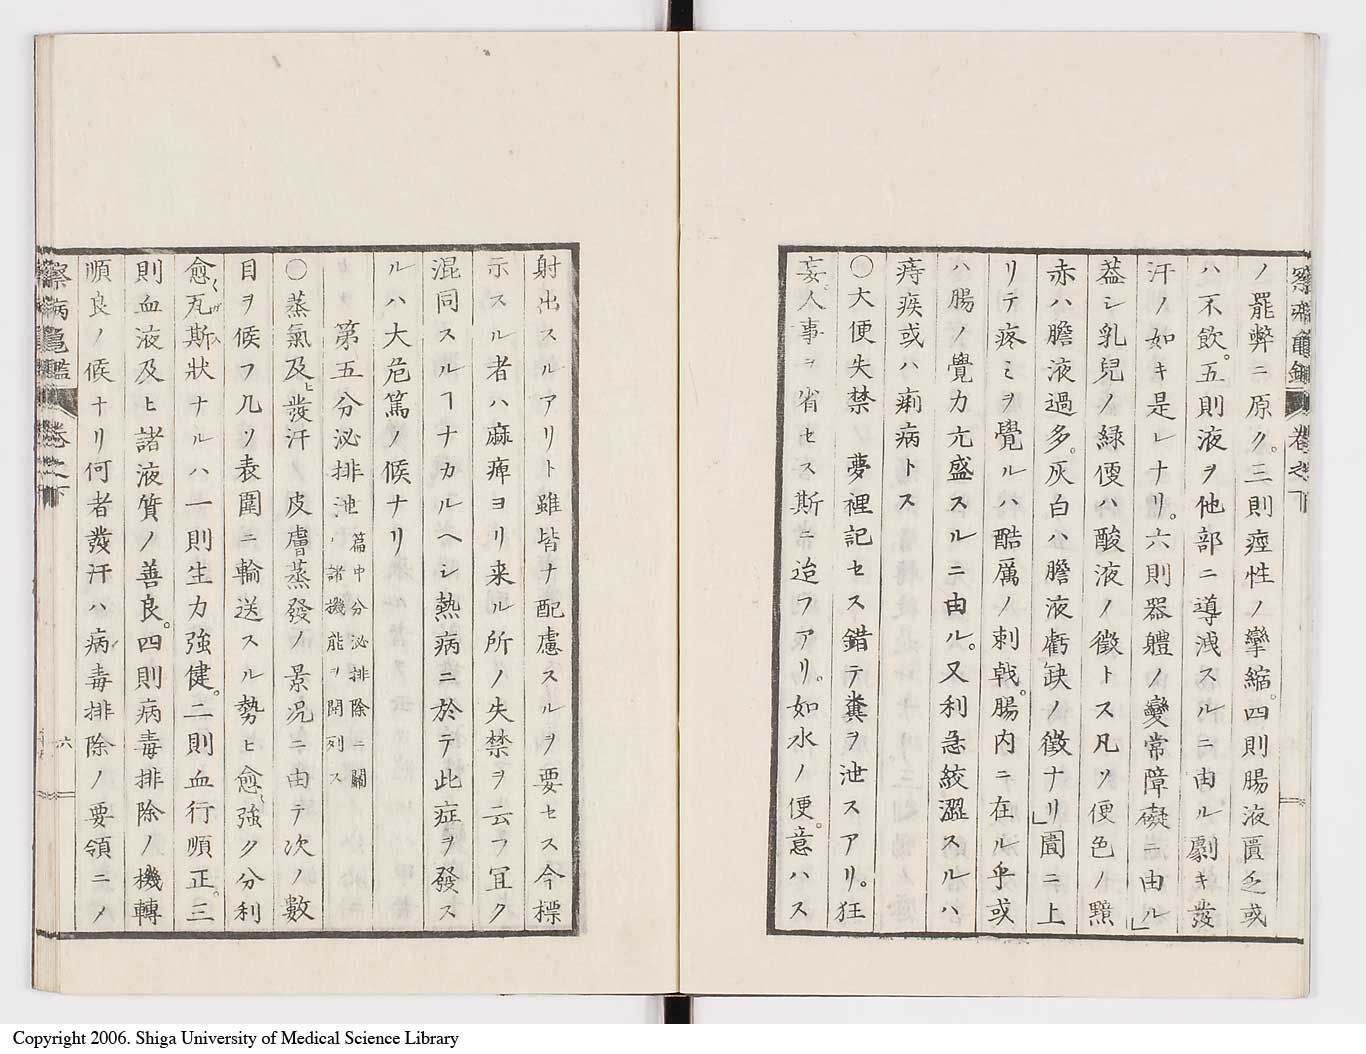 察病龜鑑 卷之下
ノ罷弊ニ原ク。三則痙性ノ攣縮。四則腸液匱乏或
ハ不飲。五則液ヲ他部ニ導洩スルニ由ル劇キ發
汗ノ如キ是レナリ。六則器軆ノ變常障礙ニ由ル」
葢シ乳兒ノ緑便ハ酸液ノ徵トス凡ソ便色ノ黯
赤ハ膽液過多。灰白ハ膽液虧缺ノ徵ナリ」圊ニ上
リテ疼ミヲ覺ルハ酷厲ノ刺戟。腸内ニ在ル乎或
ハ腸ノ覺力亢盛スルニ由ル。又利急絞澀スルハ
痔疾或ハ痢病トス
〇大便失禁 夢裡記セス錯テ糞ヲ泄スアリ。狂
妄人事ヲ省セス斯ニ迨フアリ。如水ノ便。意ハス
射出スルアリト雖皆ナ配慮スルヲ要セス今標
示スル者ハ麻痺ヨリ来ル所ノ失禁ヲ云フ冝ク
混同スルヿナカルヘシ熱病ニ於テ此症ヲ發ス
ルハ大危篤ノ候ナリ
第五分泌排泄 篇中分泌排除ニ關
ハル諸機能ヲ開列ス
〇蒸氣及ヒ發汗 皮膚蒸發ノ景况ニ由テ次ノ數
目ヲ候フ凢ソ表圍ニ輸送スル勢ヒ愈強ク分利
愈〻瓦斯狀ナルハ一則生力強健。二則血行順正。三
則血液及ヒ諸液質ノ善良。四則病毒排除ノ機轉
順良ノ候ナリ何者發汗ハ病毒排除ノ要領ニメ
察病龜鑑 卷之下
六